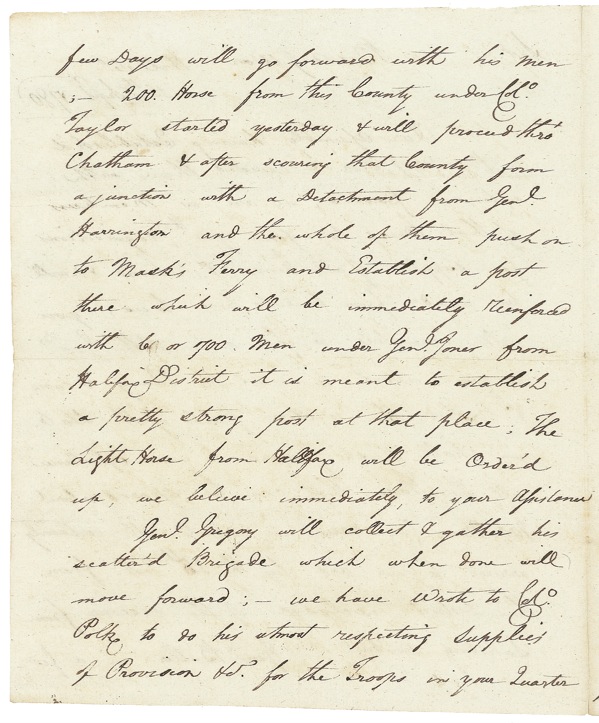 few Days will go forward with his men
;— 200. Horse from this County under Colo.
Taylor started yesterday & will proceed thro'
Chatham & after scouring that County form
a junction with a Detachment from Genl.
Harrington and the whole of them push on
to Mask's Ferry and Establish a post
there which will be immediately reinforced
with 6 or 700. Men under Genl. Jones from
Halifax District it is meant to establish
a pretty strong post at that place; The
Light Horse from Halifax will be Order'd
up, we believe immediately, to your Assistance
Genl. Gregory will collect & gather his
scatter'd Brigade which when done will
move forward;— we have Wrote to Colo.
Polk to do his utmost respecting Supplies
of Provision &c. for the Troops in your Quarter